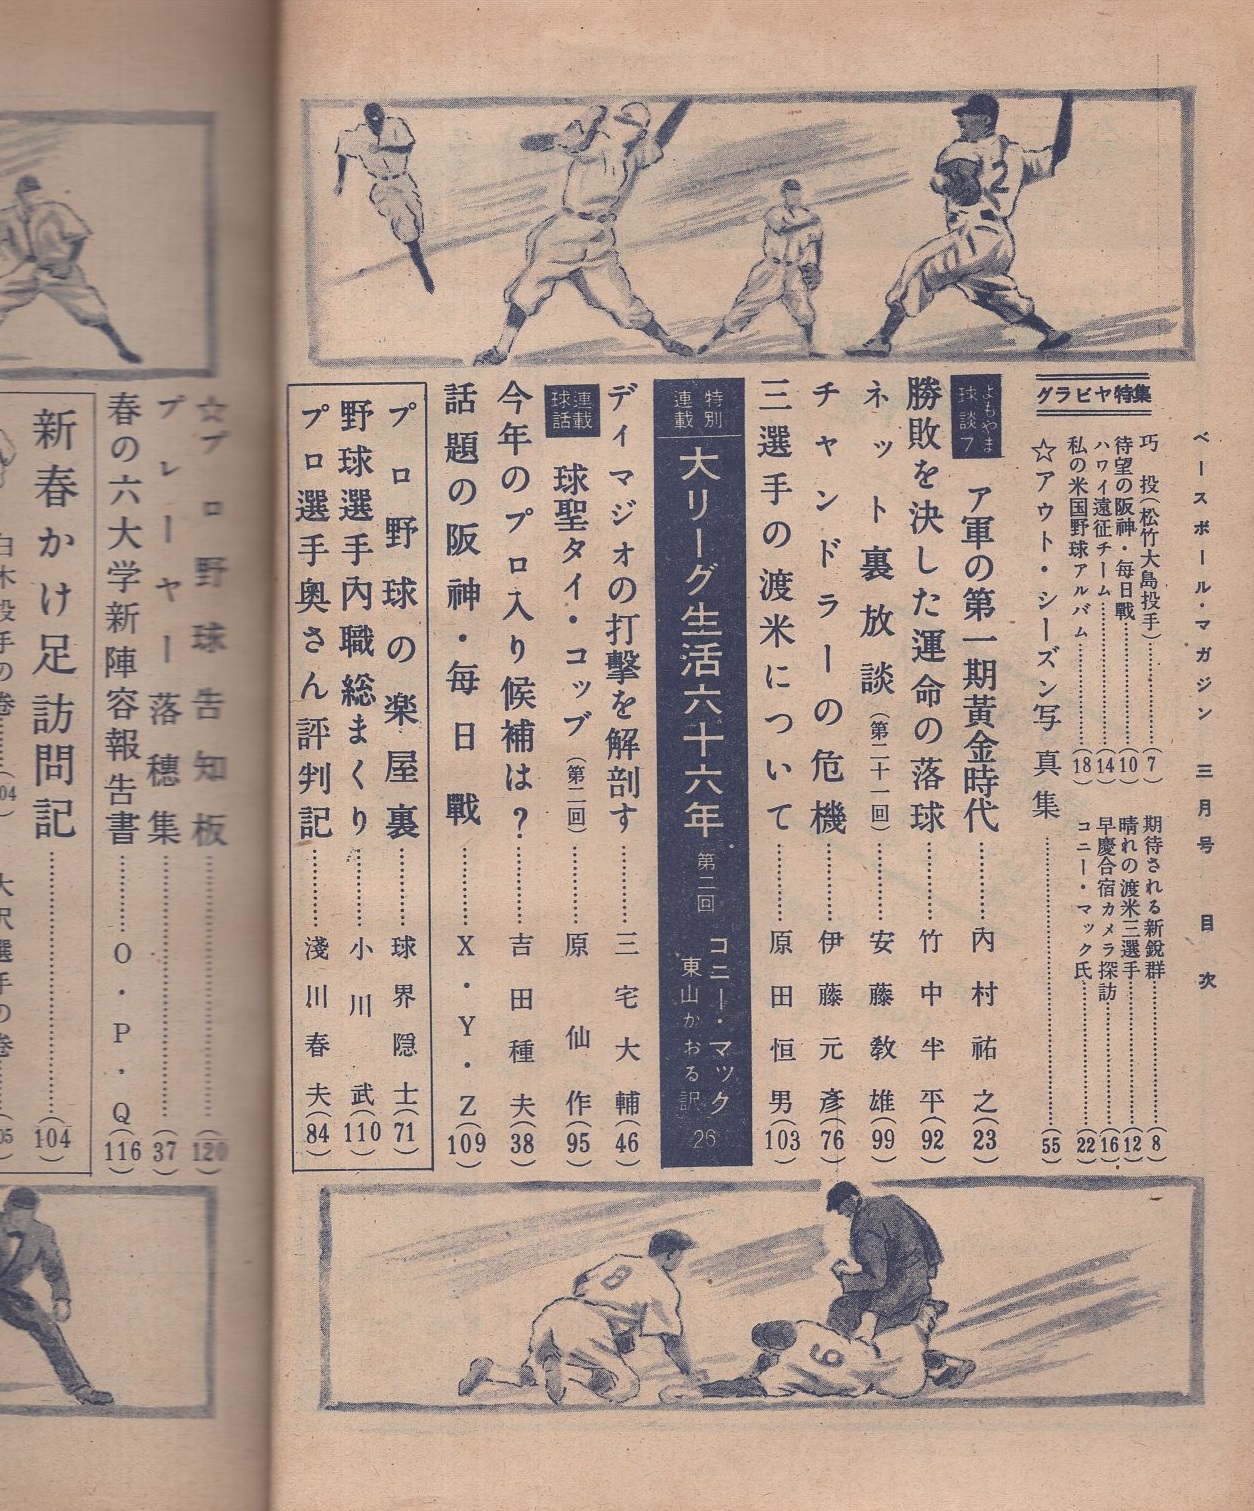 ベースボール・マガジン 三月号 目次
グラビヤ特集
巧 投(松竹大島投手)…………(7)
期待される新鋭群…………(8)
待望の阪神・毎日戰…………(10)
晴れの渡米三選手…………(12)
ハワイ遠征チーム…………(14)
早慶合宿カメラ探訪…………(16)
私の米国野球アルバム…………(18)
コニー・マック氏…………(22)
☆アウト・シーズン写真集…………(55)
よもやま球談7
ア軍の第一期黃金時代…………內村祐之(23)
勝敗を決した運命の落球…………竹中半平(92)
ネット裏放談(第二十一回)…………安藤敎雄(99)
チャンドラーの危機…………伊藤元彥(76)
三選手の渡米について…………原田恒男(103)
特別連載
大リーグ生活六十六年 第二回 コニー・マック 東山かおる訳 26
ディマジオの打擊を解剖す…………三宅大輔(46)
連載球話
球聖タイ・コッブ(第二回)…………原仙作(95)
今年のプロ入り候補は?…………吉田種夫(38)
話題の阪神・每日戰…………X・Y・Z(109)
プロ野球の楽屋裏…………球界隠士(71)
野球選手內職総まくり…………小川武(110)
プロ選手奥さん評判記…………淺川春夫(84)
☆プロ野球告知板…………(120)
プレーヤー落穗集…………(37)
春の六大学新陣容報告書…………O・P・Q(116)
新春かけ足訪問記…………(104)